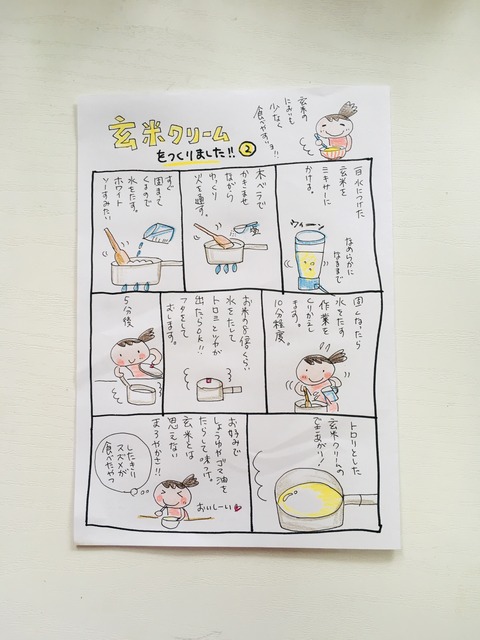 玄米クリーム
をつくりました!! ②
玄米の
においも
少なく
食べやすーョ!!
一日水につけた
玄米を
ミキサーに
かける。
なめらかに
なるまで
ウィーン
木ベラで
かきまぜ
ながら
ゆっくり
火を通す。
すぐ
固まって
くるので
水をたす。
ホワイト
ソースみたい
固くなったら
水をたす
作業を
くりかえし
ます。
10分程度。
お米の8倍くらい
水をたして
トロミとツヤが
出たらOK!!
フタをして
むします。
5分後
トロリとした
玄米クリームの
できあがり!
お好みで
しょうゆやゴマ油を
たらして味つけ。
玄米とは
思えない
まろやかさ!!
おいしーい
したきり
スズメが
食べたやつ